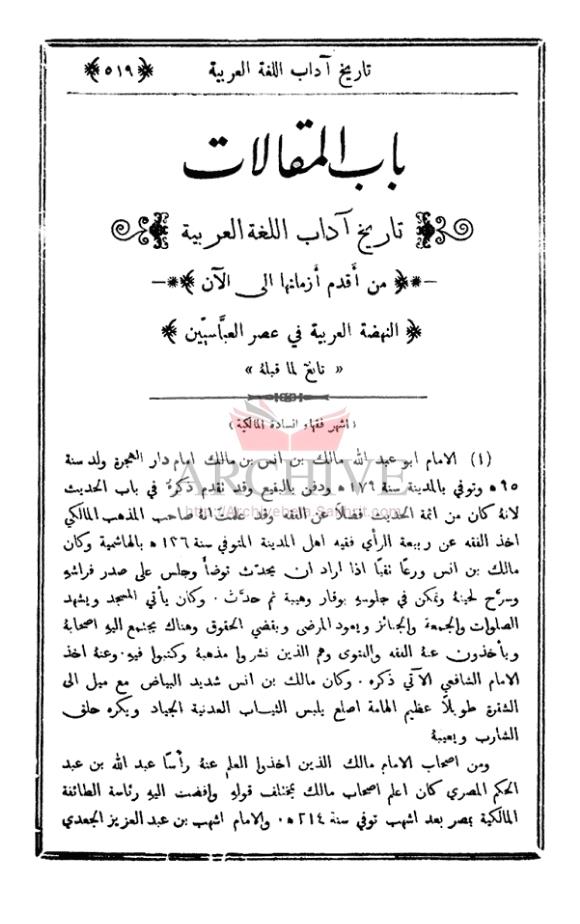 تاريخ آداب اللغة العربية ﴿٥١٩﴾
باب المقالات
تاريخ آداب اللغة العربية
﴿ من أقدم أزمانها الى الآن ﴾
﴿ النهضة العربية في عصر العبَّاسيّين ﴾
« تابع لما قبلهُ »
( اشهر فقهاء السادة المالكية )
(١) الامام ابو عبد الله مالك بن انس بن مالك امام دار الهجرة ولد سنة
٩٥ﻫ وتوفي بالمدينة سنة ١٧٩ﻫ ودفن بالبقيع وقد تقدم ذكرهُ في باب الحديث
لانهُ كان من ائمة الحديث فضلاً عن الفقه وقد علمت انهُ صاحب المذهب المالكي
اخذ الفقه عن ربيعة الرأي فقيه اهل المدينة المتوفي سنة ١٣٦ﻫ بالهاشمية وكان
مالك بن انس ورعًا نقيًا اذا اراد ان يحدث توضأَ وجلس على صدر فراشهِ
وسرَّح لحيتهُ وتمكن في جلوسهِ بوقار وهيبة ثم حدَّث . وكان يأتي المسجد ويشهد
الصلوات والجمعة والجنائز ويعود المرضى ويقضي الحقوق وهناك يجتمع اليهِ اصحابهُ
ويأخذون عنهُ الفقه والفتوى وهم الذين نشروا مذهبهُ وكتبوا فيهِ . وعنهُ اخذ
الامام الشافعي الآتي ذكره . وكان مالك بن انس شديد البياض مع ميل الى
الشقرة طويلاً عظيم الهامة اصلع يلبس الثياب العدنية الجياد ويكره حلق
الشارب ويعيبهُ
ومن اصحاب الامام مالك الذين اخذوا العلم عنهُ رأسًا عبد الله بن عبد
الحكم المصري كان اعلم اصحاب مالك بمختلف قولهِ وافضت اليهِ رئاسة الطائفة
المالكية بمصر بعد اشهب توفي سنة ٢١٤ﻫ . والامام اشهب بن عبد العزيز الجعدي
ARCHIVE
http://Archivebeta.Sakhrit.com